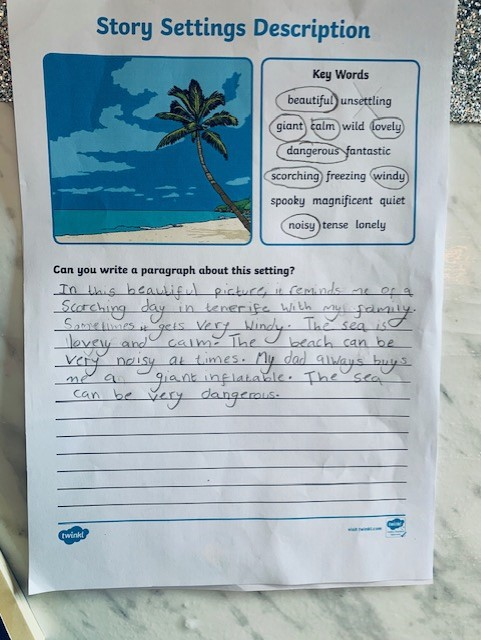 Story Settings Description
Key Words
beautiful unsettling
giant calm wild lovely
dangerous fantastic
scorching freezing windy
spooky magnificent quiet
noisy tense lonely
Can you write a paragraph about this setting?
In this beautiful picture, it reminds me of a
Scorching day in tenerife with my family.
Sometimes it gets very windy. The sea is
lovely and calm. The beach can be
very noisy at times. My dad always buys
me a giant inflatable. The sea
can be very dangerous.
twinkl
visit twinkl.com
twinkl